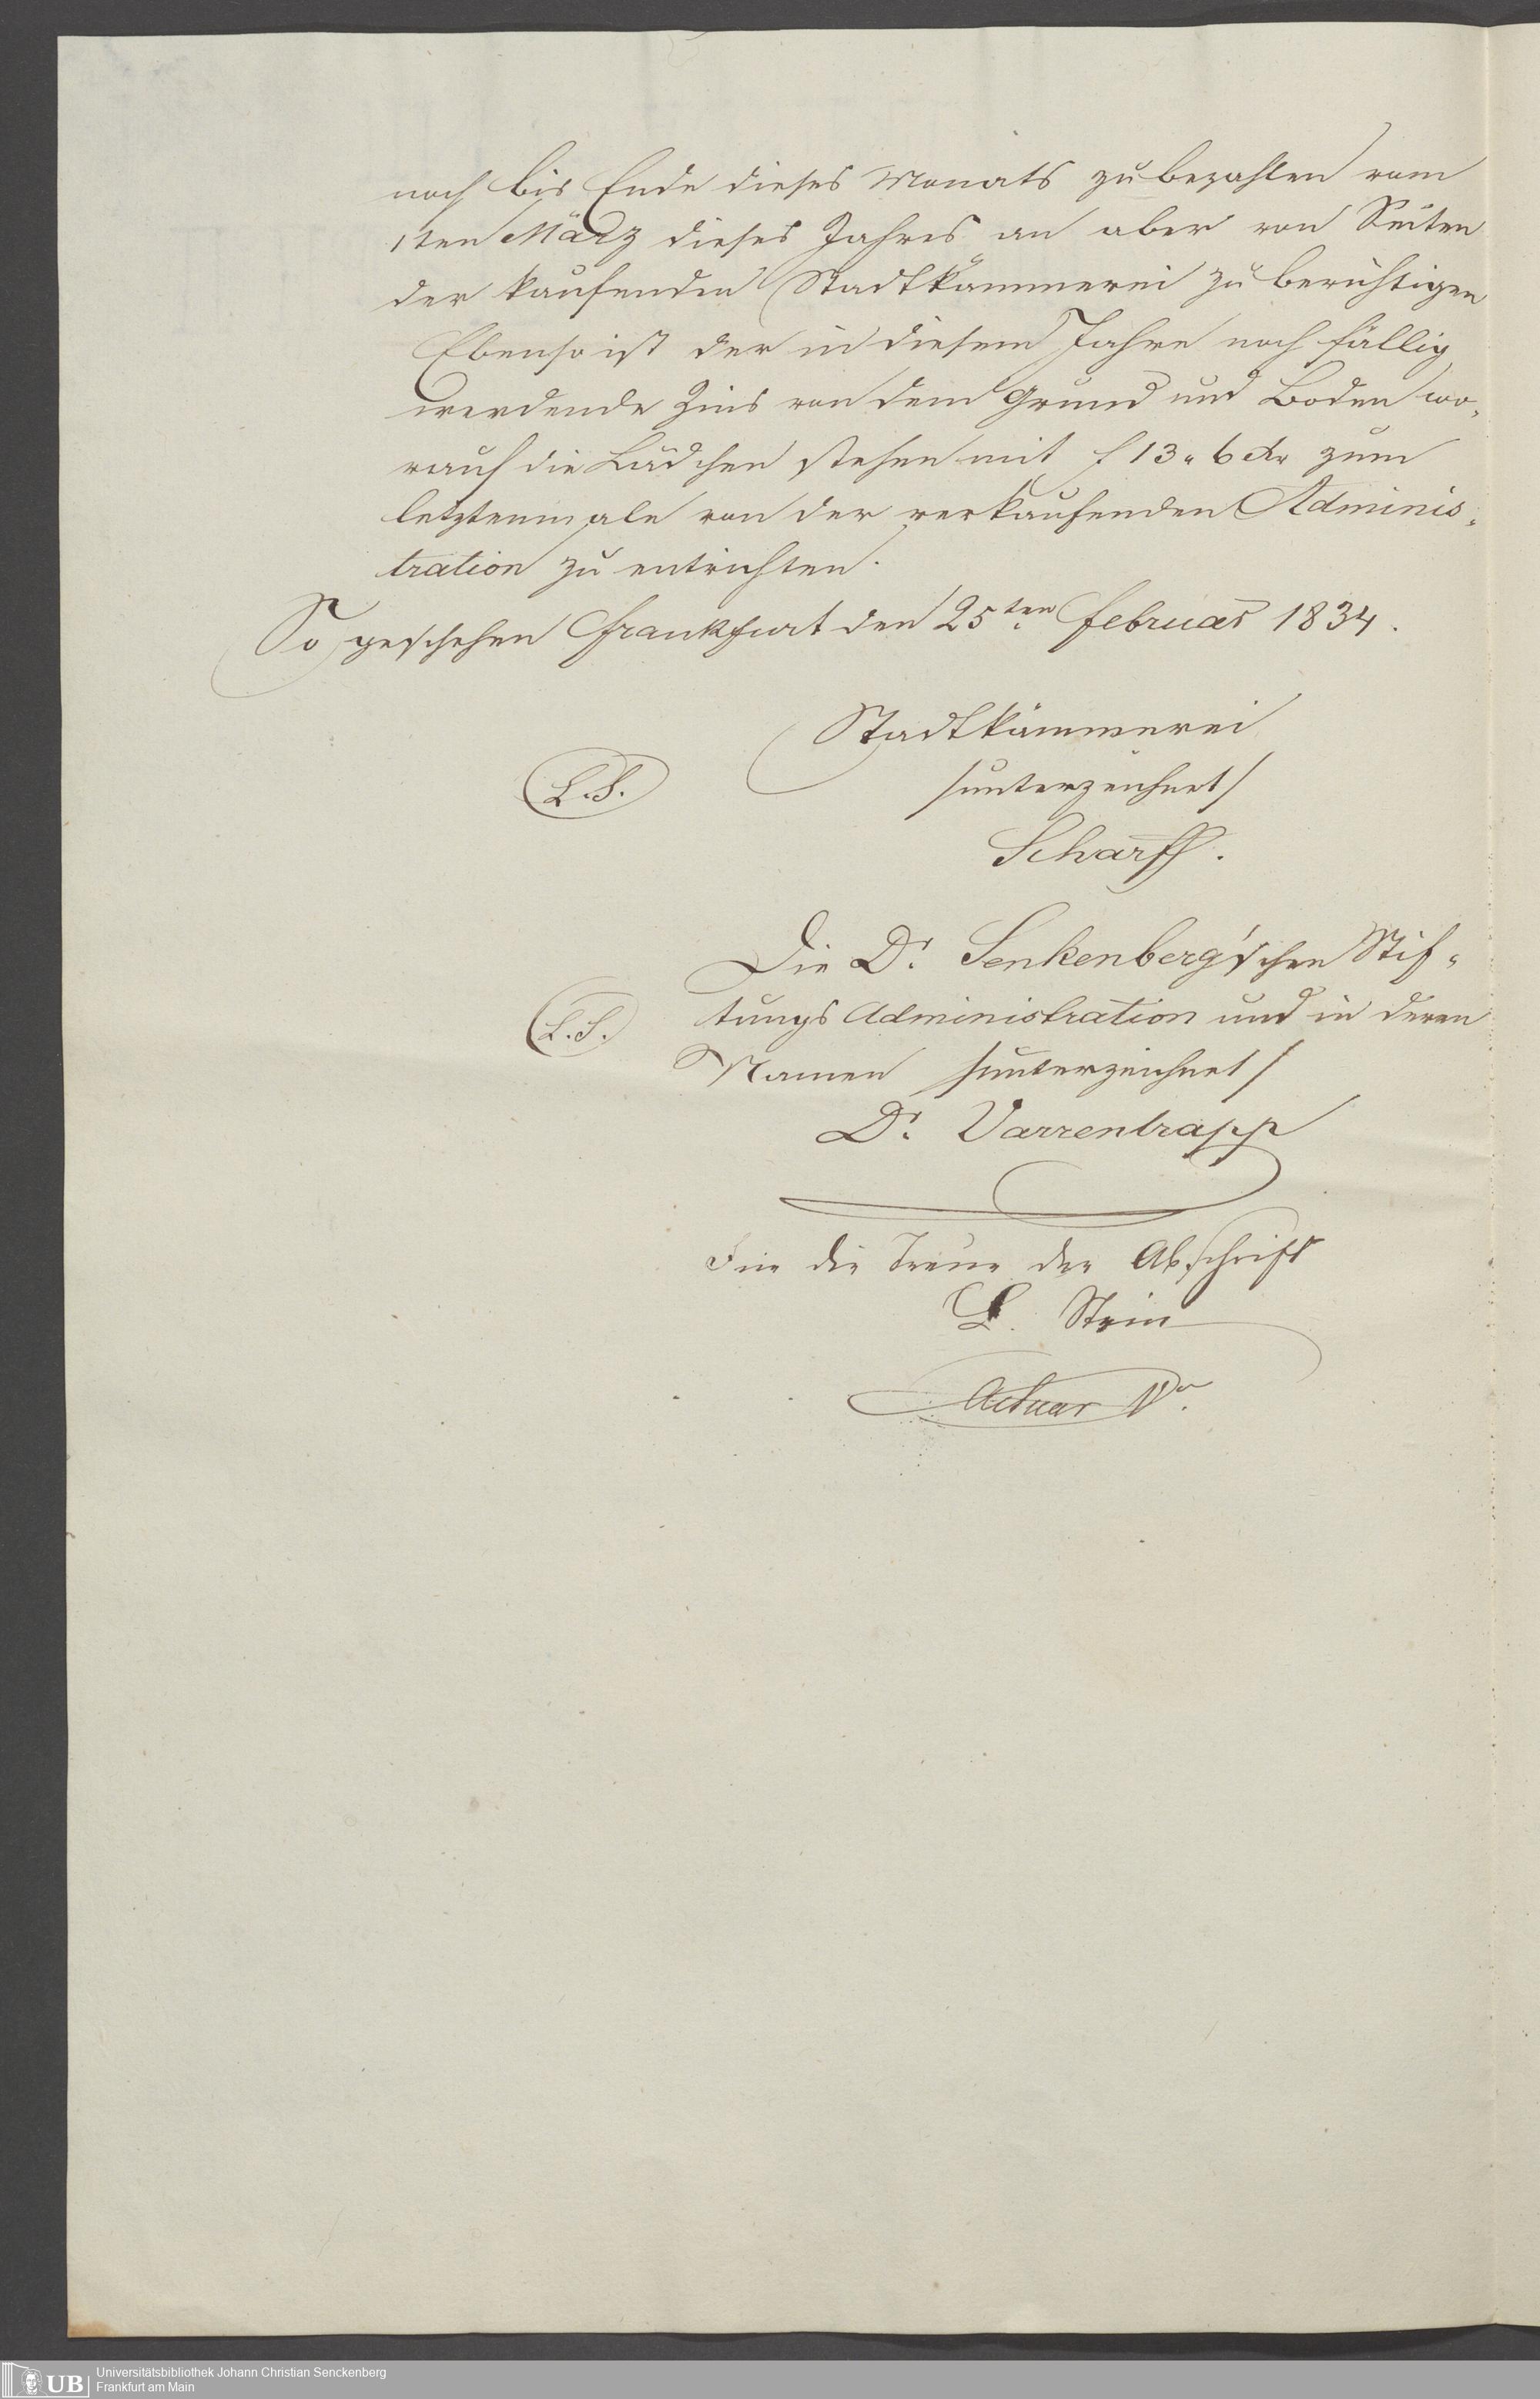 noch bis Ende dieses Monats zu bezahlen vom
1ten März dieses Jahres an aber von Seiten
der kaufenden Stadtkämmerei zu berichtigen
Ebenso ist der in diesem Jahre noch fällig
werdende Zins von dem Grund und Boden wo-
rauf die Lädchen stehen mit f 13 " 6 Xr zum
letztenmale von der verkaufenden Adminis-
tration zu entrichten.
So geschehen Frankfurt den 25ten Februar 1834.
Stadtkämmerei
L.S. /unterzeichnet/
Scharff.
Die Dr. Senkenberg'schen Stif-
L.S. tungs Administration und in deren
Namen /unterzeichnet/
Dr. Varrentrapp
Für die Treue der Abschrift
L. Stein
Actuar
UB Universitätsbibliothek Johann Christian Senckenberg
Frankfurt am Main